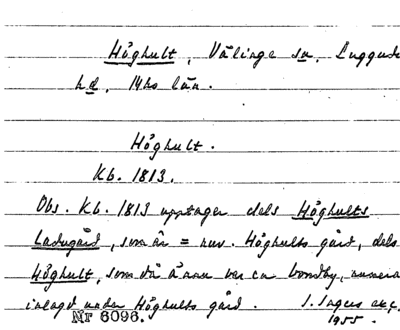 Höghult, Välinge sn, Luggude
hd, Mhs län.
Höghult.
Kb. 1813.
Obs. Kb. 1813 upptager dels Höghults
Ladugård, som är = nuv. Höghults gård, dels
Höghult, som då ännu var en bondby, numera
inlagd under Höghults gård. I. Ingers exc.
Nr 6096. 1955.